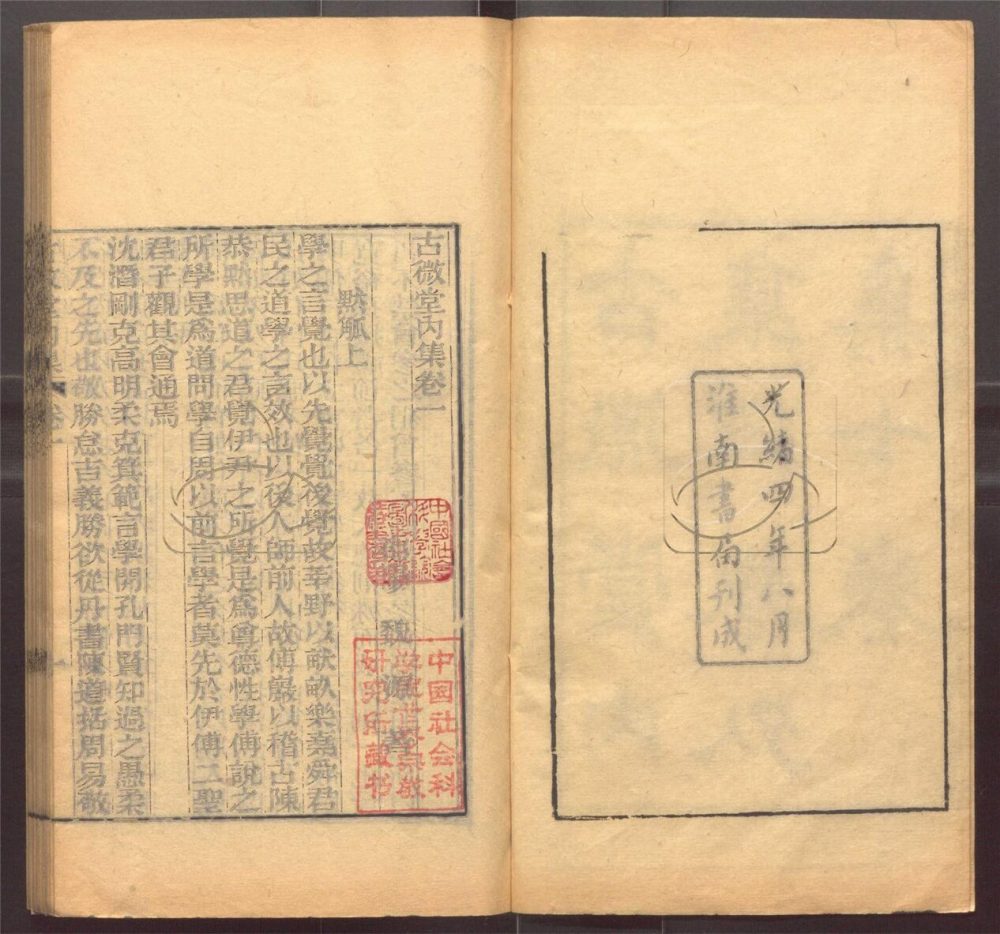 光緒四年八月
淮南書局刊成
古微堂内集卷一
魏源著
默觚上
學之言覺也以先覺覺後覺故莘野以畎畝樂堯舜君
民之道學之言效也以後人師前人故傅巖以稽古陳
恭默思道之君覺伊尹之所覺是爲尊德性學傅說之
所學是爲道問學自周以前言學者莫先於伊傅二聖
君子觀其會通焉
沈潛剛克高明柔克箕範言學開孔門賢知過之愚柔
不及之先也敬勝怠吉義勝欲從丹書陳道括周易敬
中國社會
中国社会科
研究所藏书